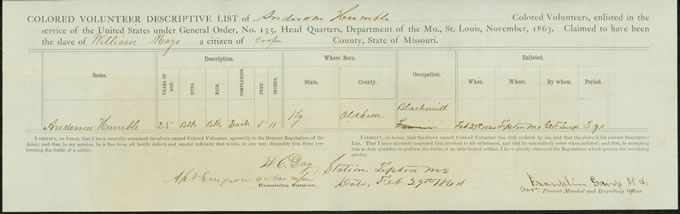 COLORED VOLUNTEER DESCRIPTIVE LIST of Anderson Humble Colored Volunteers, enlisted in the
service of the United States under General Order, No. 135, Head Quarters, Department of the Mo., St. Louis, November, 1863. Claimed to have been
the slave of William Mayo a citizen of County, State of Missouri.
Description. Where Born. Enlisted.
Name. YEARS OF AGE. EYES. HAIR. COMPLEXION. FEET. INCHES. State. County. Occupation. When. Where. By whom. Period.
Blacksmith
Anderson Humble 25 Blk Blk Dark 5 11 Ky Oldham Tipton Mo 3 yrs
I CERTIFY, on honor, that I have carefully examined the above named Colored Volunteer, agreeably to the General Regulations of the
Army, and that, in my opinion, he is free from all bodily defects and mental infirmity that would, in any way, disqualify him from per-
forming the duties of a soldier.
I CERTIFY, on honor, that the above Colored Volunteer was duly enlisted by me, and that the above is his correct Descriptive
List. That I have minutely inspected him previous to his enlistment, and that he was entirely sober when enlisted; and that, in accepting
him as duly qualified to perform the duties of an able-bodied soldier, I have strictly observed the Regulations which govern the recruiting
service.
Station, Tipton Mo
Date, Feb 29th 1864
Examining Surgeon.
Franklin
Provost Marshal and Recruiting Officer.